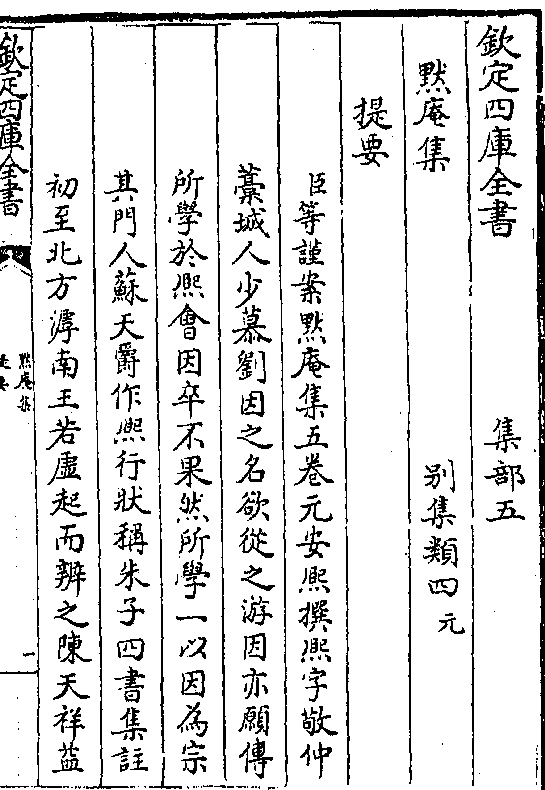 欽定四庫全書　集部五
默庵集　别集類四元
提要
臣等謹案默庵集五卷元安熙撰熙字敬仲
藁城人少慕劉因之名欲從之游因亦願傳
所學於熙會因卒不果然所學一以因為宗
其門人蘇天爵作熙行狀稱朱子四書集註
初至北方滹南王若虛起而辨之陳天祥益
欽定四庫全書
默庵集
提要
一